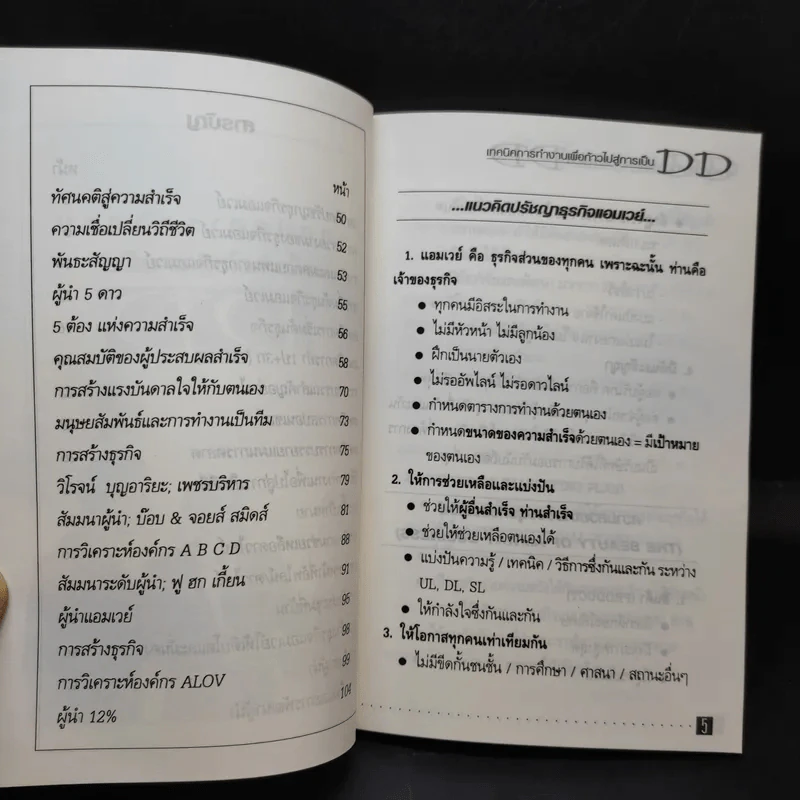 หน้า
ทัศนคติสู่ความสำเร็จ 50
ความเชื่อเปลี่ยนวิถีชีวิต 52
พันธะสัญญา 53
ผู้นำ 5 ดาว 55
5 ต้อง แห่งความสำเร็จ 56
คุณสมบัติของผู้ประสบผลสำเร็จ 58
การสร้างแรงบันดาลใจให้กับตนเอง 70
มนุษยสัมพันธ์และการทำงานเป็นทีม 73
การสร้างธุรกิจ 75
วิโรจน์ บุญอาริยะ; เพชรบริหาร 79
สัมมนาผู้นำ; บ๊อบ & จอยส์ สมิดส์ 81
การวิเคราะห์องค์กร A B C D 88
สัมมนาระดับผู้นำ; ฟู ฮก เกี้ยน 91
ผู้นำแอมเวย์ 95
การสร้างธุรกิจ 98
การวิเคราะห์องค์กร ALOV 99
ผู้นำ 12% 104
เทคนิคการทำงานเพื่อก้าวไปสู่การเป็น DD
...แนวคิดปรัชญาธุรกิจแอมเวย์...
1. แอมเวย์ คือ ธุรกิจส่วนของทุกคน เพราะฉะนั้น ท่านคือ
เจ้าของธุรกิจ
● ทุกคนมีอิสระในการทำงาน
● ไม่มีหัวหน้า ไม่มีลูกน้อง
● ฝึกเป็นนายตัวเอง
● ไม่รออัพไลน์ ไม่รอดาวไลน์
● กำหนดตารางการทำงานด้วยตนเอง
● กำหนดขนาดของความสำเร็จด้วยตนเอง = มีเป้าหมาย
ของตนเอง
2. ให้การช่วยเหลือและแบ่งปัน
● ช่วยให้ผู้อื่นสำเร็จ ท่านสำเร็จ
● ช่วยให้ช่วยเหลือตนเองได้
● แบ่งปันความรู้ / เทคนิค / วิธีการซึ่งกันและกัน ระหว่าง
UL, DL, SL
● ให้กำลังใจซึ่งกันและกัน
3. ให้โอกาสทุกคนเท่าเทียมกัน
● ไม่มีขีดกั้นชนชั้น / การศึกษา / ศาสนา / สถานะอื่นๆ
5